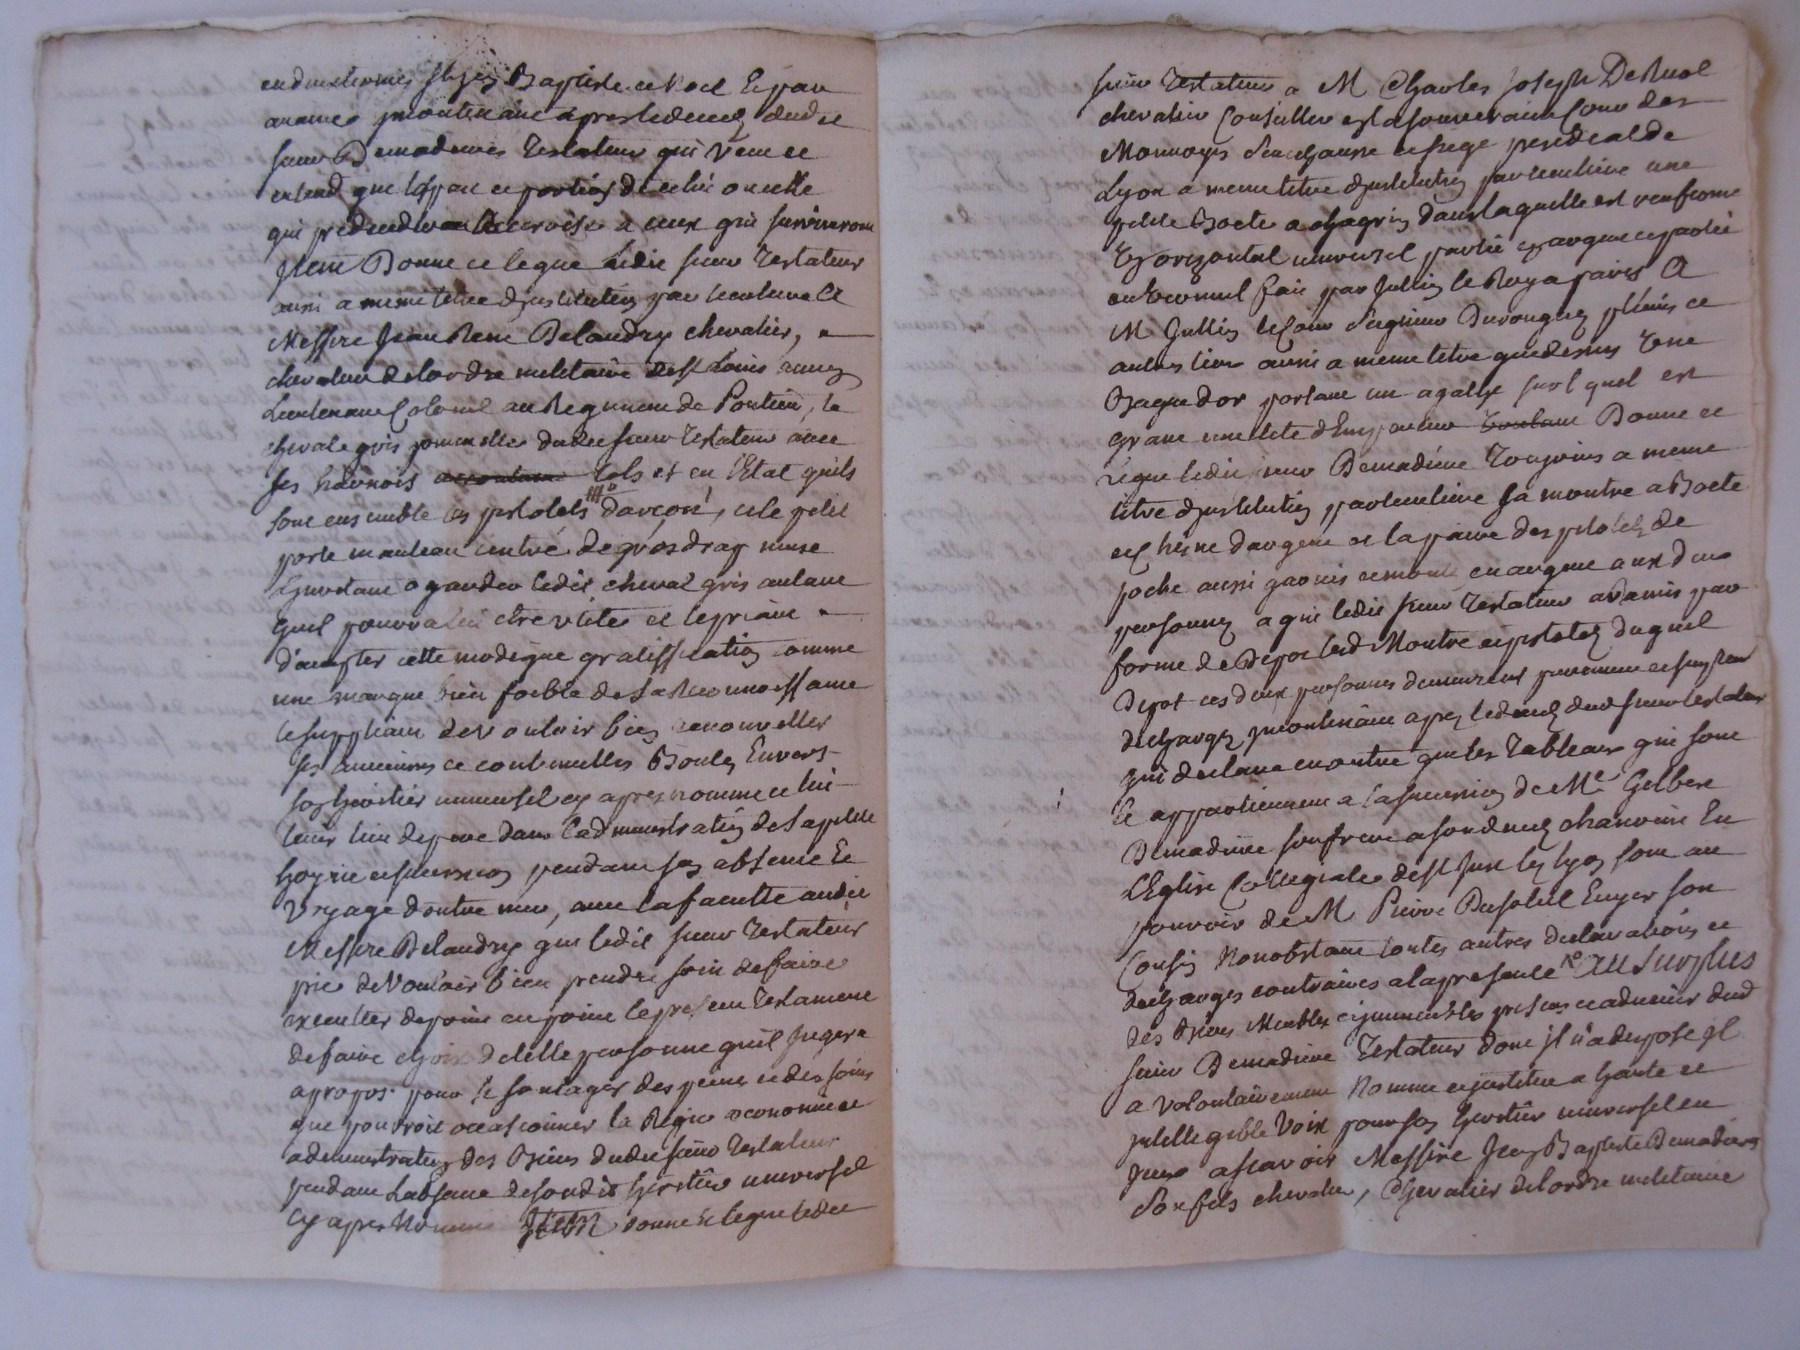 en deux termes St Jean Baptiste et Noel Et par
avance incontinant apres le deceds dudit
sieur Demadieres Testateur qui veut et
entend que la part et portion de celui ou celle
qui predecederont accroisse a ceux qui survivront
Item Donne et legue ledit sieur Testateur
aussi a meme titre d'institution particuliere a
Messire Jean Rene Delandry chevalier,
chevalier de lordre militaire de St Louis ancien
Lieutenant Colonel au Regiment de Pontieu, le
cheval gris pommelle dudit sieur Testateur avec
ses harnois Tels et en l'Etat qu'ils
sont ensemble les pistolets d'arçon, et le petit
porte manteau de gros drap
Exhortant a garder ledit cheval gris autant
quil pourra lui etre utile et le priant
d'accepter cette modique gratiffication comme
une marque bien foible de sa Reconnoissance
le suppliant de vouloir bien renouveller
ses anciennes et continuelles Bontes Envers
son heritier universel cy apres nomme et lui
tenir lieu de pere dans l'administration de sa petite
hoyrie et succession pendant son absence Et
voyage d'outre mer, avec la faculté audit
Messire Delandry que ledit sieur Testateur
prie de vouloir bien prendre soin de faire
executter de point en point le present Testament
de faire choix de telle personne qu'il Jugera
apropos pour le soulager des peines et des soins
que pourroit occasionner la Regie oeconomie et
administration des Biens dudit sieur Testateur
pendant Labsence de sondit heritier universel
cy apres Nommé Item donne Et legue ledit
sieur Testateur a M Charles Joseph DeRuol
chevalier Conseiller en la souveraine Cour des
Monnoyes Senechaussee et siege presidial de
Lyon a meme titre d'institution particuliere une
petite Boete a chagrin dans laquelle est renfermé
un horizontal universel partie en argent et partie
en fait par Jullien le Roy a paris A
M Jullien
autres lieux aussi a meme titre que dessus Une
Bague d'or portant un agathe sur lequel est
gravé une tete d'Empereur Donne et
legue ledit sieur Demadiere Toujours a meme
titre d'institution particuliere sa montre a Boete
et Cheine d'argent et la paire de pistolets de
poche aussi garnis et montés en argent aux deux
personnes a qui ledit sieur Testateur a Remis par
forme de Depot lesd Montre et pistolets duquel
Depot ces deux personnes demeureront purement et simplement
dechargés incontinant apres le deceds dud sieur testateur
qui declare en outre que les Tableaux qui sont
Et appartiennent a la succession de Me Gilbert
Demadiere son frere a son deceds chanoine En
L'Eglise Collegiale de St Just les Lyon sont au
pouvoir de M Pierre Dusoleil Ecuyer son
Cousin Nonobstant toutes autres declarations et
decharges contraires a la presente Au Surplus
des Biens Meubles et immeubles presens et advenir dud
sieur Demadiere Testateur dont il n'a disposé il
a volontairement Nommé et institué a haute et
intelligible Voix pour son heritier universel en
iceux a scavoir Messire Jean Baptiste Demadieres
son fils chevalier, Chevalier de lordre militaire